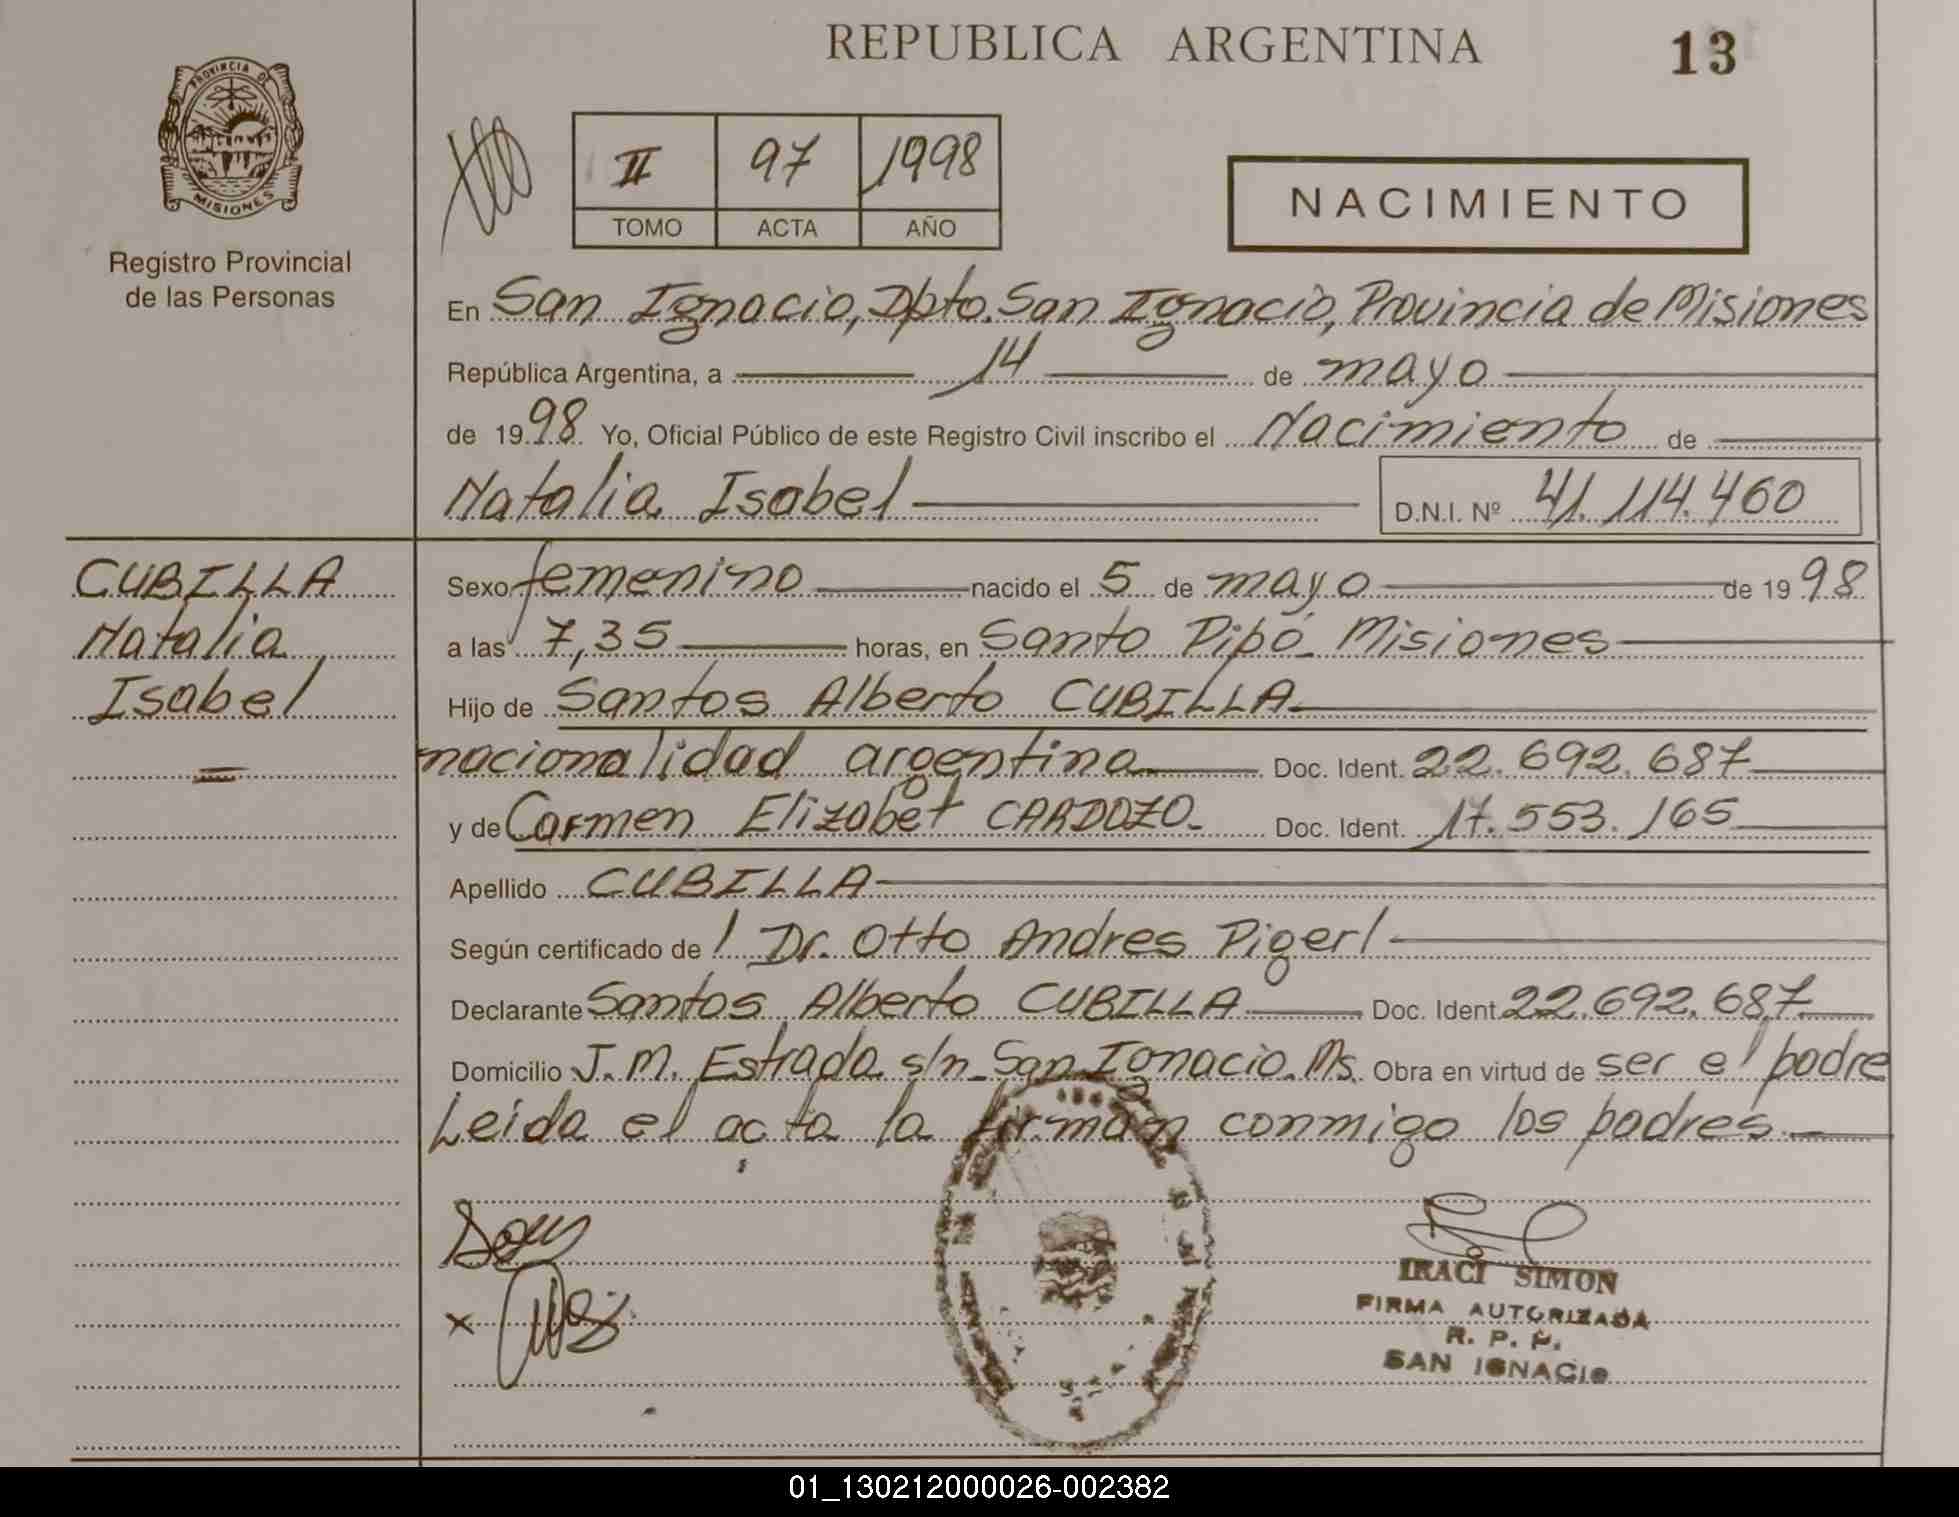 REPUBLICA ARGENTINA
13
PROVINCIA DE
MISIONES
Registro Provincial
de las Personas
II 97 1998
TOMO ACTA AÑO
NACIMIENTO
En San Ignacio, Dpto. San Ignacio, Provincia de Misiones
República Argentina, a 14 de mayo
de 1998 Yo, Oficial Público de este Registro Civil inscribo el Nacimiento de
Natalia Isabel D.N.I. Nº 41.114.460
CUBILLA
Natalia
Isabel
Sexo femenino nacido el 5 de mayo de 1998
a las 7,35 horas, en Santo Pipó - Misiones
Hijo de Santos Alberto CUBILLA
nacionalidad argentina Doc. Ident. 22.692.687
y de Carmen Elizabet CARDOZO Doc. Ident. 17.553.165
Apellido CUBILLA
Según certificado de l Dr. Otto Andres Pigerl
Declarante Santos Alberto CUBILLA Doc. Ident. 22.692.687
Domicilio J. M. Estrada s/n - San Ignacio. Ms. Obra en virtud de ser el padre
Leida el acta la firman conmigo los padres
IRACI SIMON
FIRMA AUTORIZADA
R. P. P.
SAN IGNACIO
01_130212000026-002382